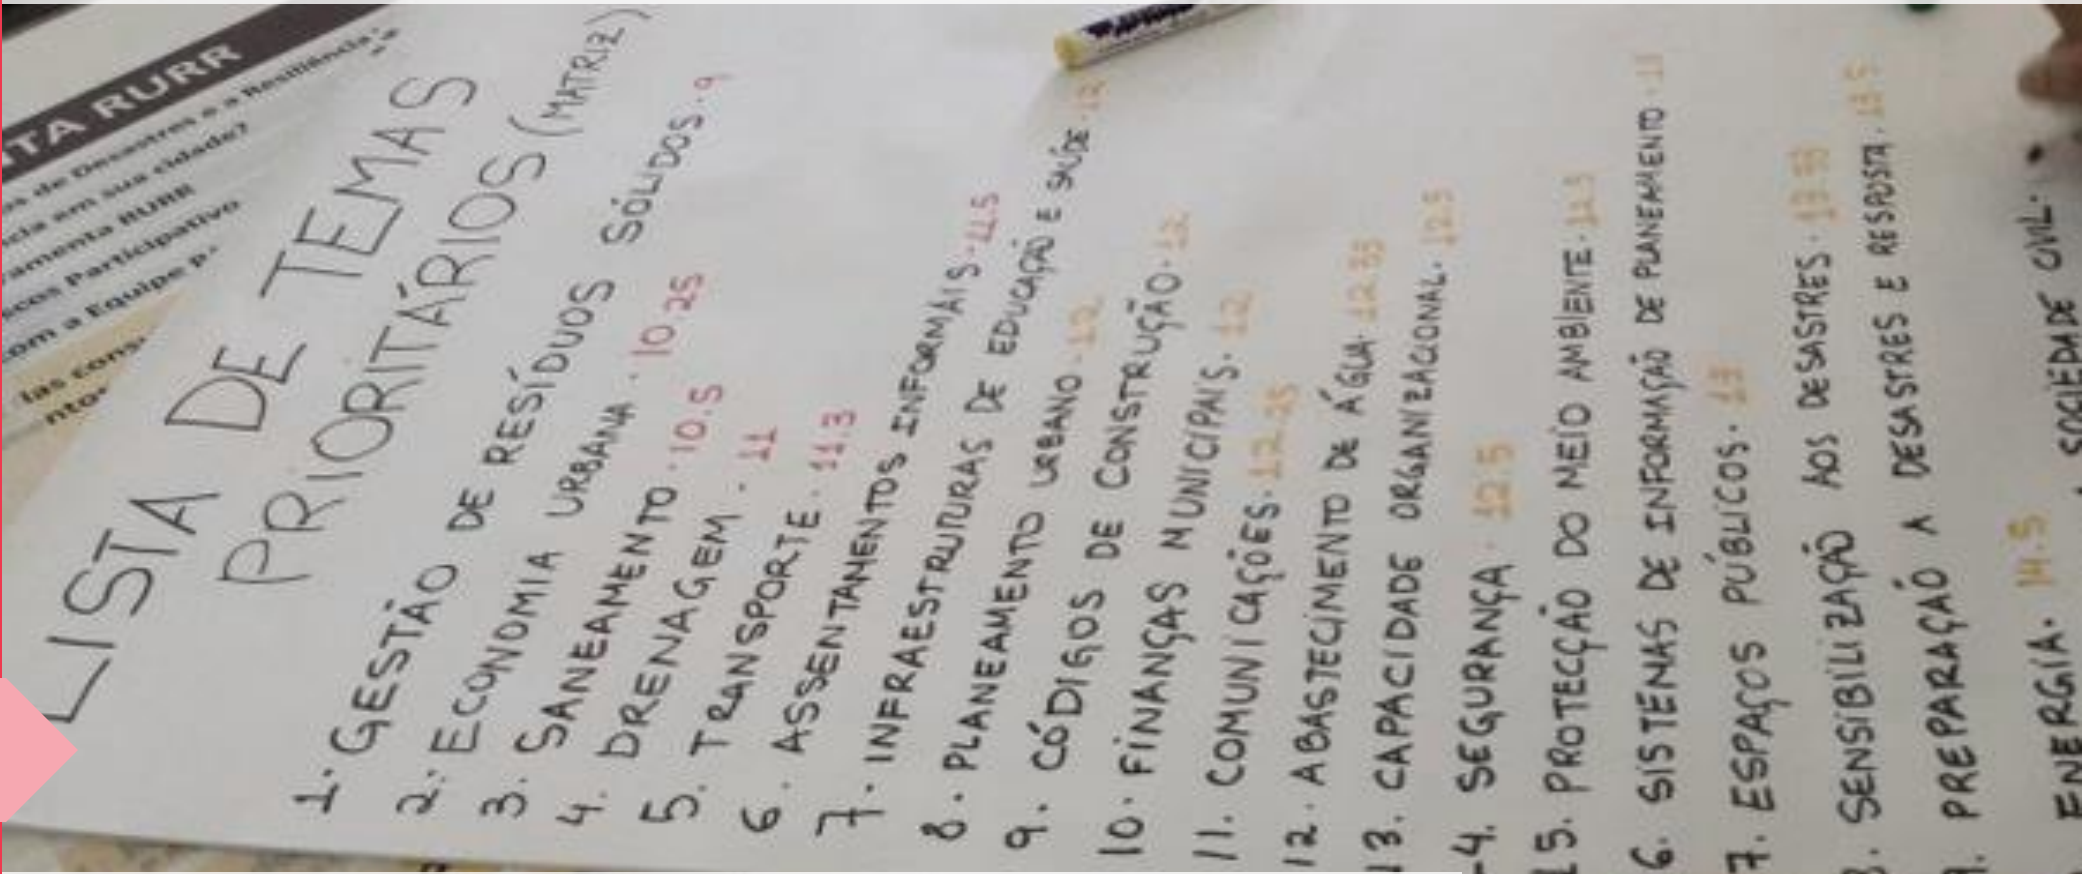 TA RURR
de Desastres e a Resiliência
em sua cidade?
RURR
Participativo
com a Equipe
las
LISTA DE TEMAS
PRIORITÁRIOS (MATRIZ)
1. GESTÃO DE RESÍDUOS SÓLIDOS. 9
2. ECONOMIA URBANA. 10.25
3. SANEAMENTO. 10.5
4. DRENAGEM. 11
5. TRANSPORTE. 11.3
6. ASSENTAMENTOS INFORMAIS. 11.5
7. INFRAESTRUTURAS DE EDUCAÇÃO E SAÚDE. 12
8. PLANEAMENTO URBANO. 12
9. CÓDIGOS DE CONSTRUÇÃO. 12
10. FINANÇAS MUNICIPAIS. 12
11. COMUNICAÇÕES. 12.25
12. ABASTECIMENTO DE ÁGUA. 12.33
13. CAPACIDADE ORGANIZACIONAL. 12.5
4. SEGURANÇA. 12.5
15. PROTECÇÃO DO MEIO AMBIENTE. 12.5
6. SISTEMAS DE INFORMAÇÃO DE PLANEAMENTO.
7. ESPAÇOS PÚBLICOS. 13
. SENSIBILIZAÇÃO AOS DESASTRES.
. PREPARAÇÃO A DESASTRES E RESPOSTA. 13.5
ENERGIA. 14.5
SOCIEDADE CIVIL.